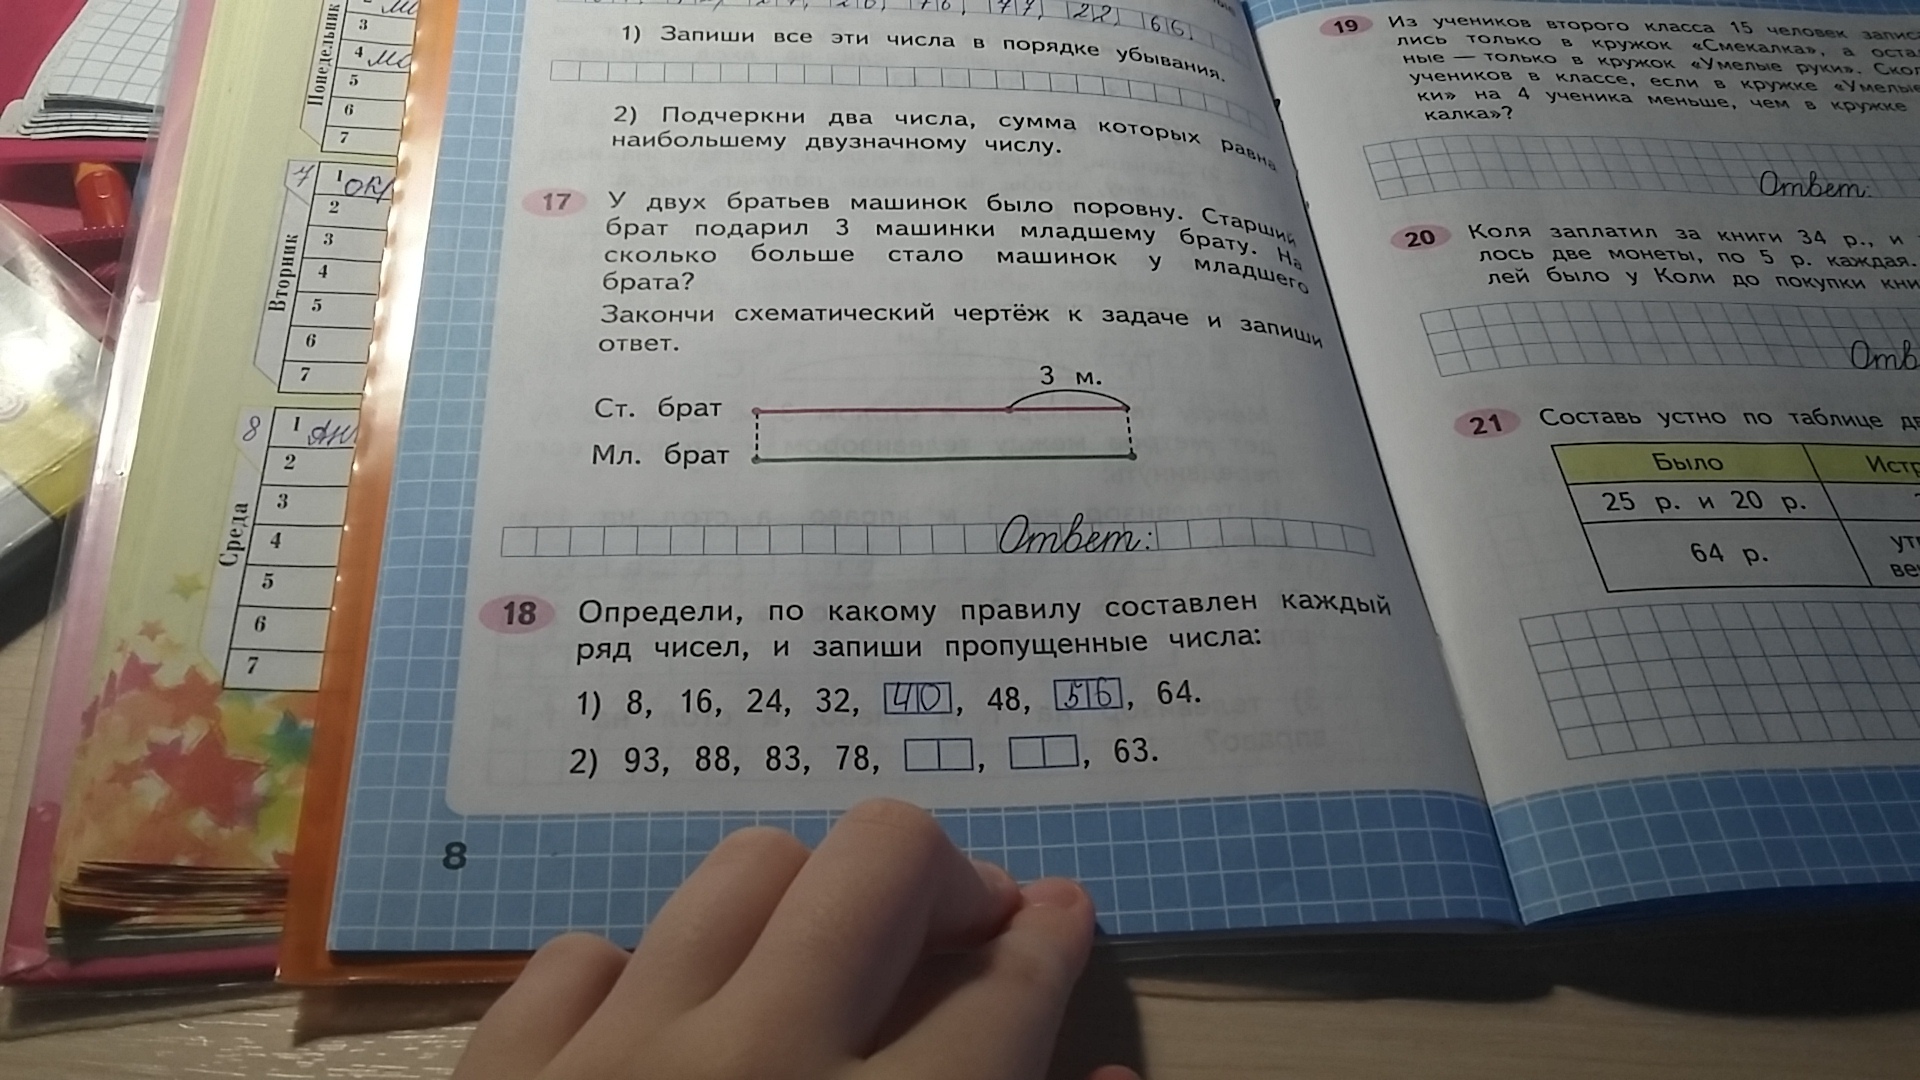 Понедельник
3
4
5
6
7
7
Вторник
1
2
3
4
5
6
7
8
Среда
1
2
3
4
5
6
7
1) Запиши все эти числа в порядке убывания.
2) Подчеркни два числа, сумма которых равна
наибольшему двузначному числу.
17 У двух братьев машинок было поровну. Старший
брат подарил 3 машинки младшему брату. На
сколько больше стало машинок у младшего
брата?
Закончи схематический чертёж к задаче и запиши
ответ.
3 м.
Ст. брат
Мл. брат
Ответ:
18 Определи, по какому правилу составлен каждый
ряд чисел, и запиши пропущенные числа:
1) 8, 16, 24, 32, 40, 48, 56, 64.
2) 93, 88, 83, 78, , , 63.
8
19 Из учеников второго класса 15 человек
лись только в кружок «Смекалка», а
ные — только в кружок «Умелые руки».
учеников в классе, если в кружке «Умелые
ки» на 4 ученика меньше, чем в кружке
калка»?
Ответ:
20 Коля заплатил за книги 34 р., и
лось две монеты, по 5 р. каждая.
лей было у Коли до покупки
21 Составь устно по таблице
Было
25 р. и 20 р.
64 р.